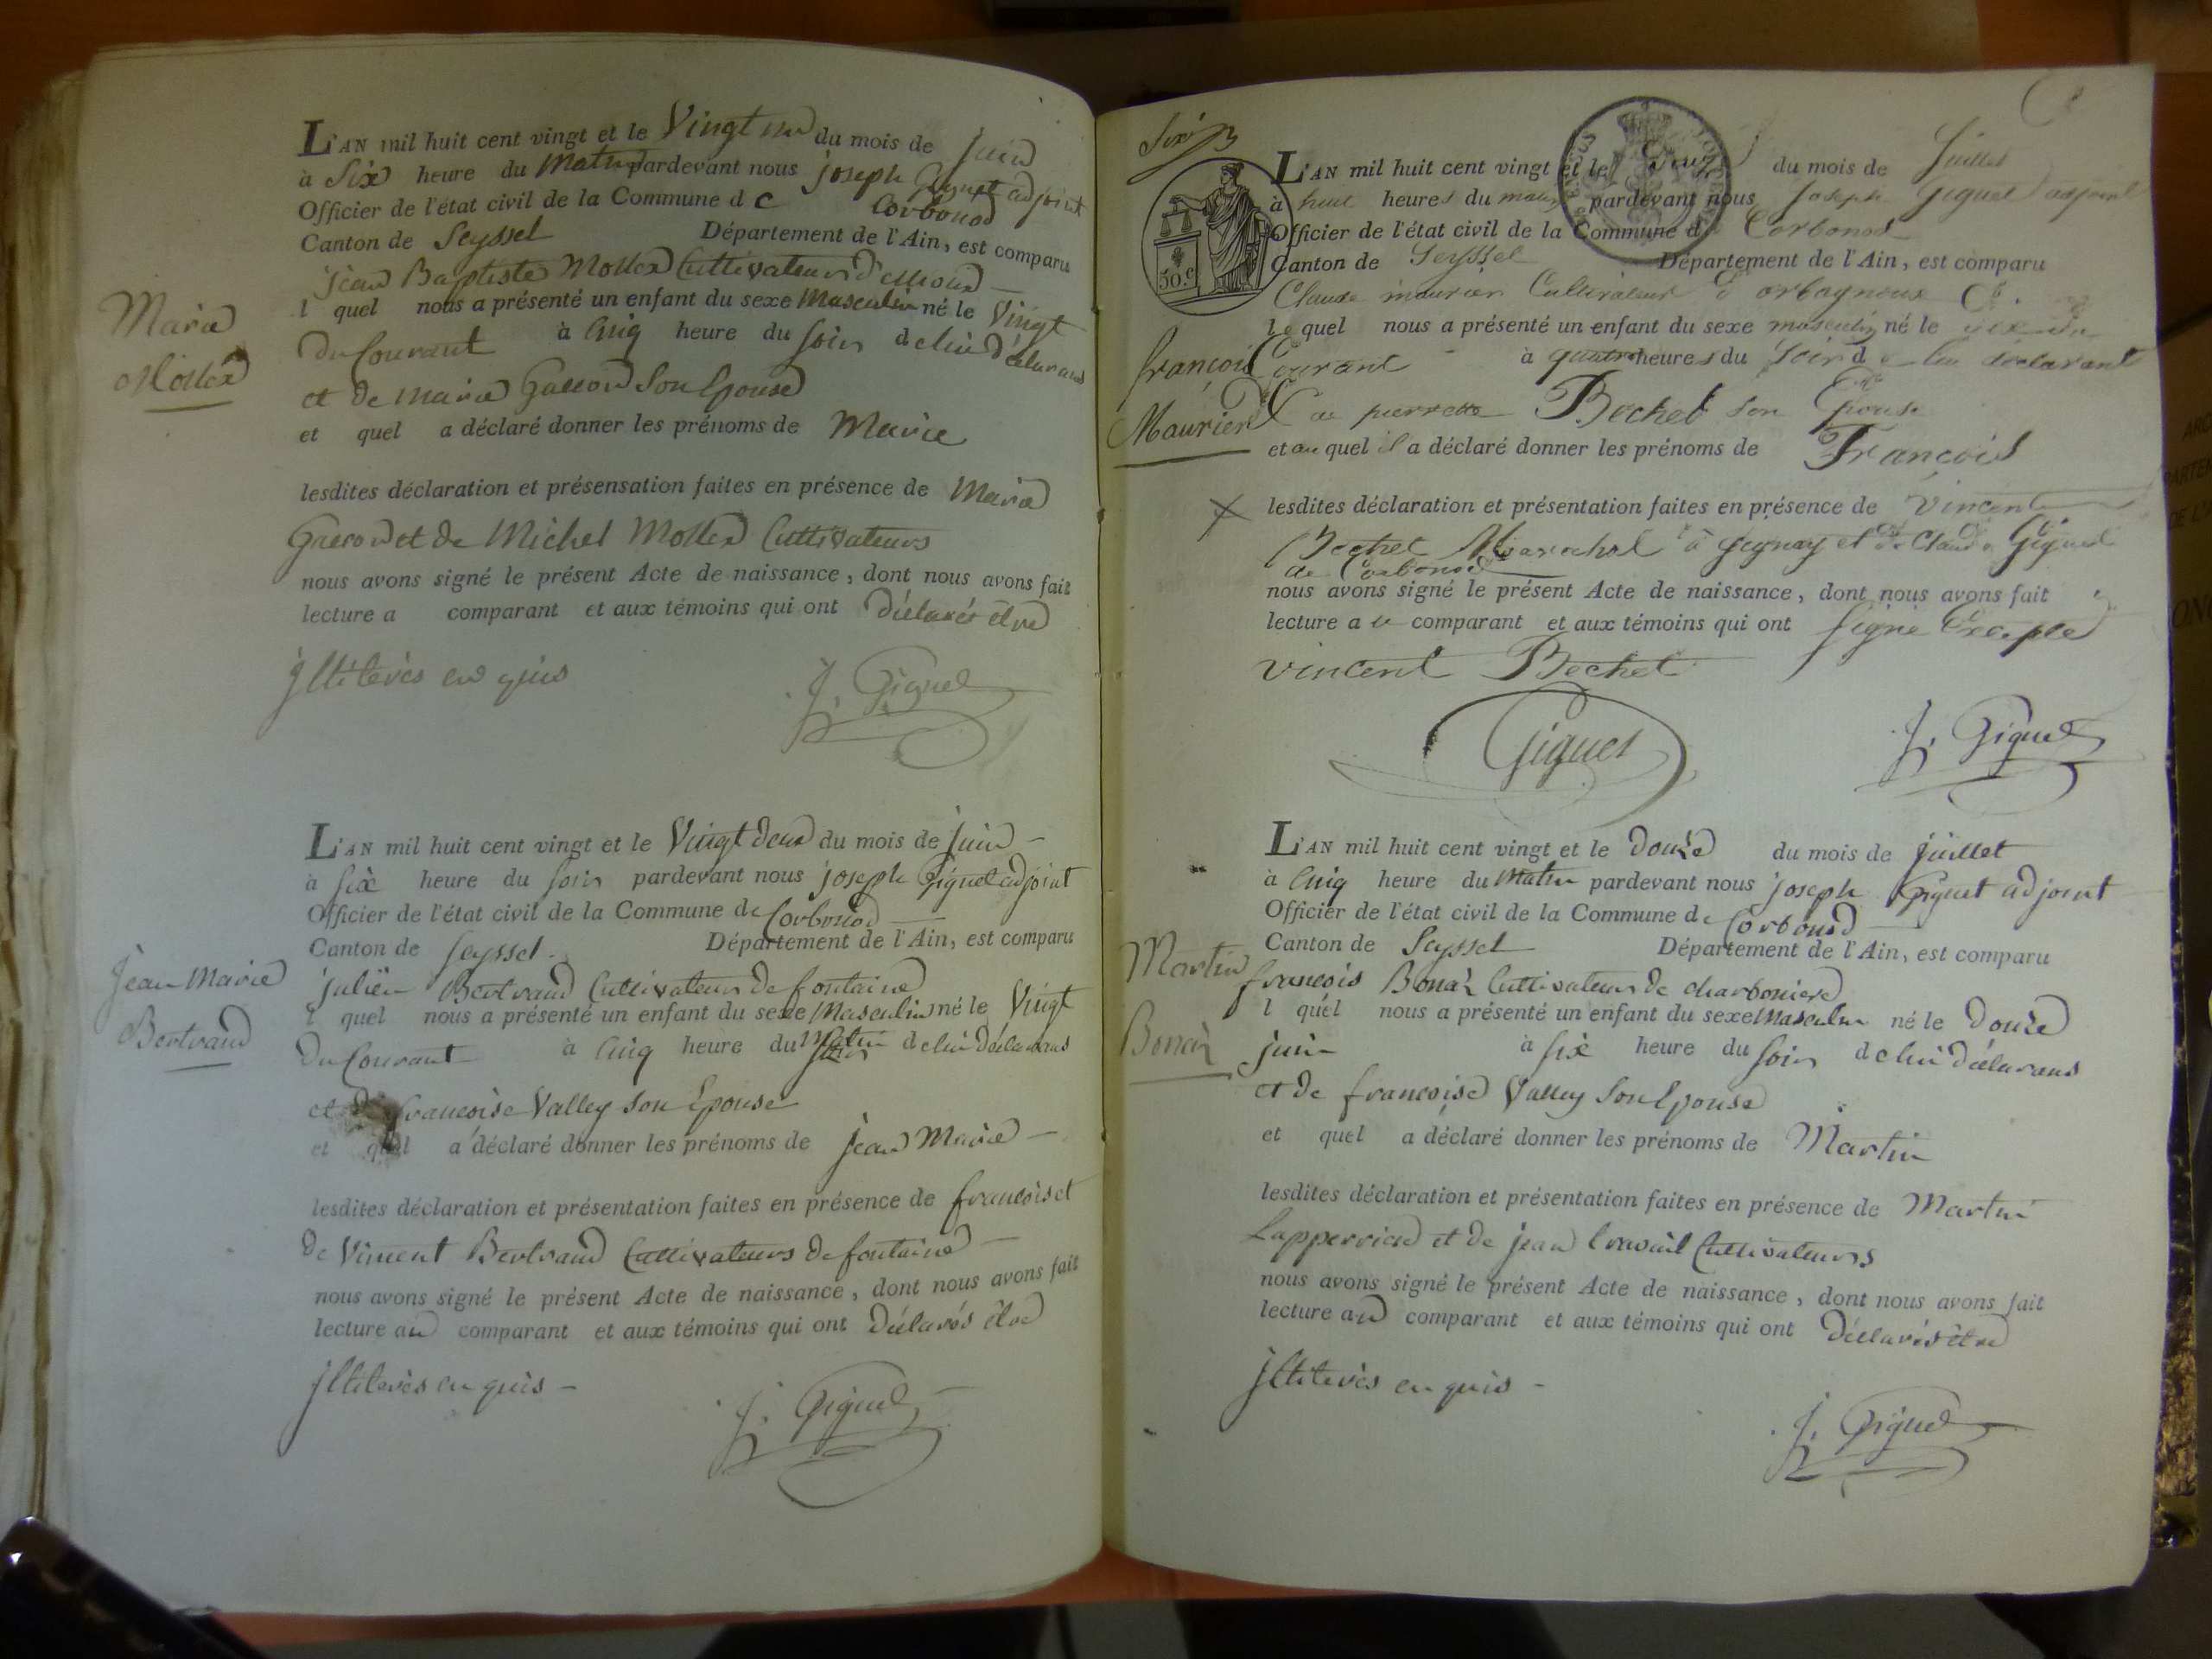 L'AN mil huit cent vingt et le Vingt un du mois de Juin
à Six heure du Matin pardevant nous joseph Giguet adjoint
Officier de l'état civil de la Commune de Corbonod
Canton de Seyssel Département de l'Ain, est comparu
jean Baptiste Mollex Cultivateur
l quel nous a présenté un enfant du sexe Masculin né le Vingt
Du Courant à Cinq heure du Soir de lui Déclarans
Marie
Mollex
et de marie Son Epouse
et quel a déclaré donner les prénoms de Marie
lesdites déclaration et présensation faites en présence de Marie
et de Michel Mollex Cultivateurs
nous avons signé le présent Acte de naissance, dont nous avons fait
lecture a comparant et aux témoins qui ont Déclarés être
jlliterés en quis
J. Giguet
L'AN mil huit cent vingt et le Vingt Deux du mois de juin
à six heure du soir pardevant nous joseph Giguet adjoint
Officier de l'état civil de la Commune de Corbonod
Canton de seyssel Département de l'Ain, est comparu
Jean Marie
Bertrand
julien Bertrand Cultivateur de fontaine
l quel nous a présenté un enfant du sexe Masculin né le Vingt
Du Courant à Cinq heure du Matin de lui Déclarans
et De francoise Valley son Epouse
et quel a déclaré donner les prénoms de jean Marie
lesdites déclaration et présentation faites en présence de francois et
De Vincent Bertrand Cultivateurs de fontaine
nous avons signé le présent Acte de naissance, dont nous avons fait
lecture au comparant et aux témoins qui ont Déclarés être
jlliterés en quis
J. Giguet
50.c
L'AN mil huit cent vingt et le Douze du mois de Juillet
à huit heures du matin pardevant nous Joseph Giguet adjoint
Officier de l'état civil de la Commune de Corbonod
Canton de Seyssel Département de l'Ain, est comparu
Claude maurier Cultivateur d'orbagnoux
le quel nous a présenté un enfant du sexe masculin né le dix du
Courant à quatre heures du Soir de lui déclarant
François
Maurier
& de pierrette Bochet son Epouse
et au quel il a déclaré donner les prénoms de François
lesdites déclaration et présentation faites en présence de Vincent
Bochet Marechal à et de Claude Giguet
de Corbonod
nous avons signé le présent Acte de naissance, dont nous avons fait
lecture a le comparant et aux témoins qui ont Signé Excepté
vincent Bochet
Giguet
J. Giguet
L'AN mil huit cent vingt et le Douze du mois de juillet
à Cinq heure du Matin pardevant nous joseph Giguet adjoint
Officier de l'état civil de la Commune de Corbonod
Canton de Seyssel Département de l'Ain, est comparu
Martin
Bonaz
francois Bonaz Cultivateur de charboniere
l quel nous a présenté un enfant du sexe Masculin né le Douze
juin à six heure du soir de lui Déclarans
et De francoise Valley Son Epouse
et quel a déclaré donner les prénoms de Martin
lesdites déclaration et présentation faites en présence de Martin
Lapperriere et de jean Cultivateurs
nous avons signé le présent Acte de naissance, dont nous avons fait
lecture au comparant et aux témoins qui ont Déclarés être
jlliterés en quis
J. Giguet